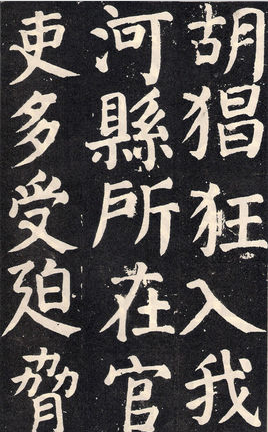 胡猖狂入我
河縣所在官
吏多受迫脅